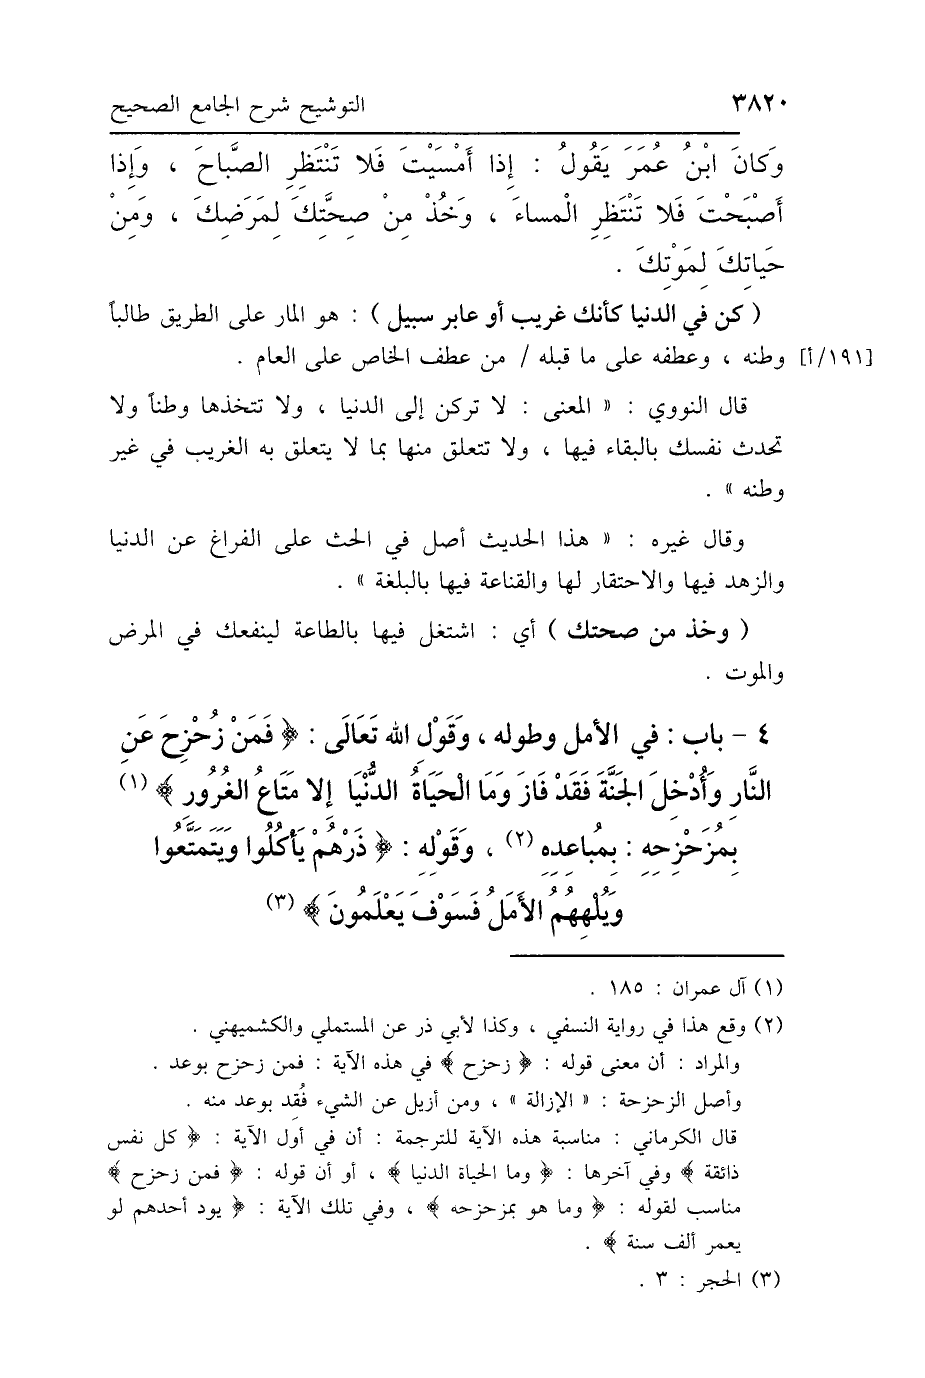 ٣٨٢٠ التوشيح شرح الجامع الصحيح
وَكَانَ ابْنُ عُمَرَ يَقُولُ : إِذا أَمْسَيْتَ فَلا تَنْتَظِرِ الصَّباحَ ، وَإِذا
أَصْبَحْتَ فَلا تَنْتَظِرِ الْمساءَ ، وَخُذْ مِنْ صحَّتِكَ لِمَرَضِكَ ، وَمِنْ
حَياتِكَ لِمَوْتِكَ .
( كن في الدنيا كأنك غريب أو عابر سبيل ) : هو المار على الطريق طالباً
[١٩١/أ] وطنه ، وعطفه على ما قبله / من عطف الخاص على العام .
قال النووي : « المعنى : لا تركن إلى الدنيا ، ولا تتخذها وطناً ولا
تحدث نفسك بالبقاء فيها ، ولا تتعلق منها بما لا يتعلق به الغريب في غير
وطنه » .
وقال غيره : « هذا الحديث أصل في الحث على الفراغ عن الدنيا
والزهد فيها والاحتقار لها والقناعة فيها بالبلغة » .
( وخذ من صحتك ) أي : اشتغل فيها بالطاعة لينفعك في المرض
والموت .
٤ - باب : في الأمل وطوله ، وَقَوْلِ الله تَعَالَى : ﴿ فَمَنْ زُحْزِحَ عَنِ
النَّارِ وَأُدْخِلَ الجَنَّةَ فَقَدْ فَازَ وَمَا الْحَيَاةُ الدُّنْيَا إِلا مَتَاعُ الغُرُورِ ﴾ (١)
بِمُزَحْزِحِهِ : بِمُباعِدِهِ (٢) ، وَقَوْلِهِ : ﴿ ذَرْهُمْ يَأْكُلُوا وَيَتَمَتَّعُوا
وَيُلْهِهُمُ الأَمَلُ فَسَوْفَ يَعْلَمُونَ ﴾ (٣)
(١) آل عمران : ١٨٥ .
(٢) وقع هذا في رواية النسفي ، وكذا لأبي ذر عن المستملي والكشميهني .
والمراد : أن معنى قوله : ﴿ زحزح ﴾ في هذه الآية : فمن زحزح بوعد .
وأصل الزحزحة : « الإزالة » ، ومن أزيل عن الشيء فُقِد بوعد منه .
قال الكرماني : مناسبة هذه الآية للترجمة : أن في أول الآية : ﴿ كل نفس
ذائقة ﴾ وفي آخرها : ﴿ وما الحياة الدنيا ﴾ ، أو أن قوله : ﴿ فمن زحزح ﴾
مناسب لقوله : ﴿ وما هو بمزحزحه ﴾ ، وفي تلك الآية : ﴿ يود أحدهم لو
يعمر ألف سنة ﴾ .
(٣) الحجر : ٣ .